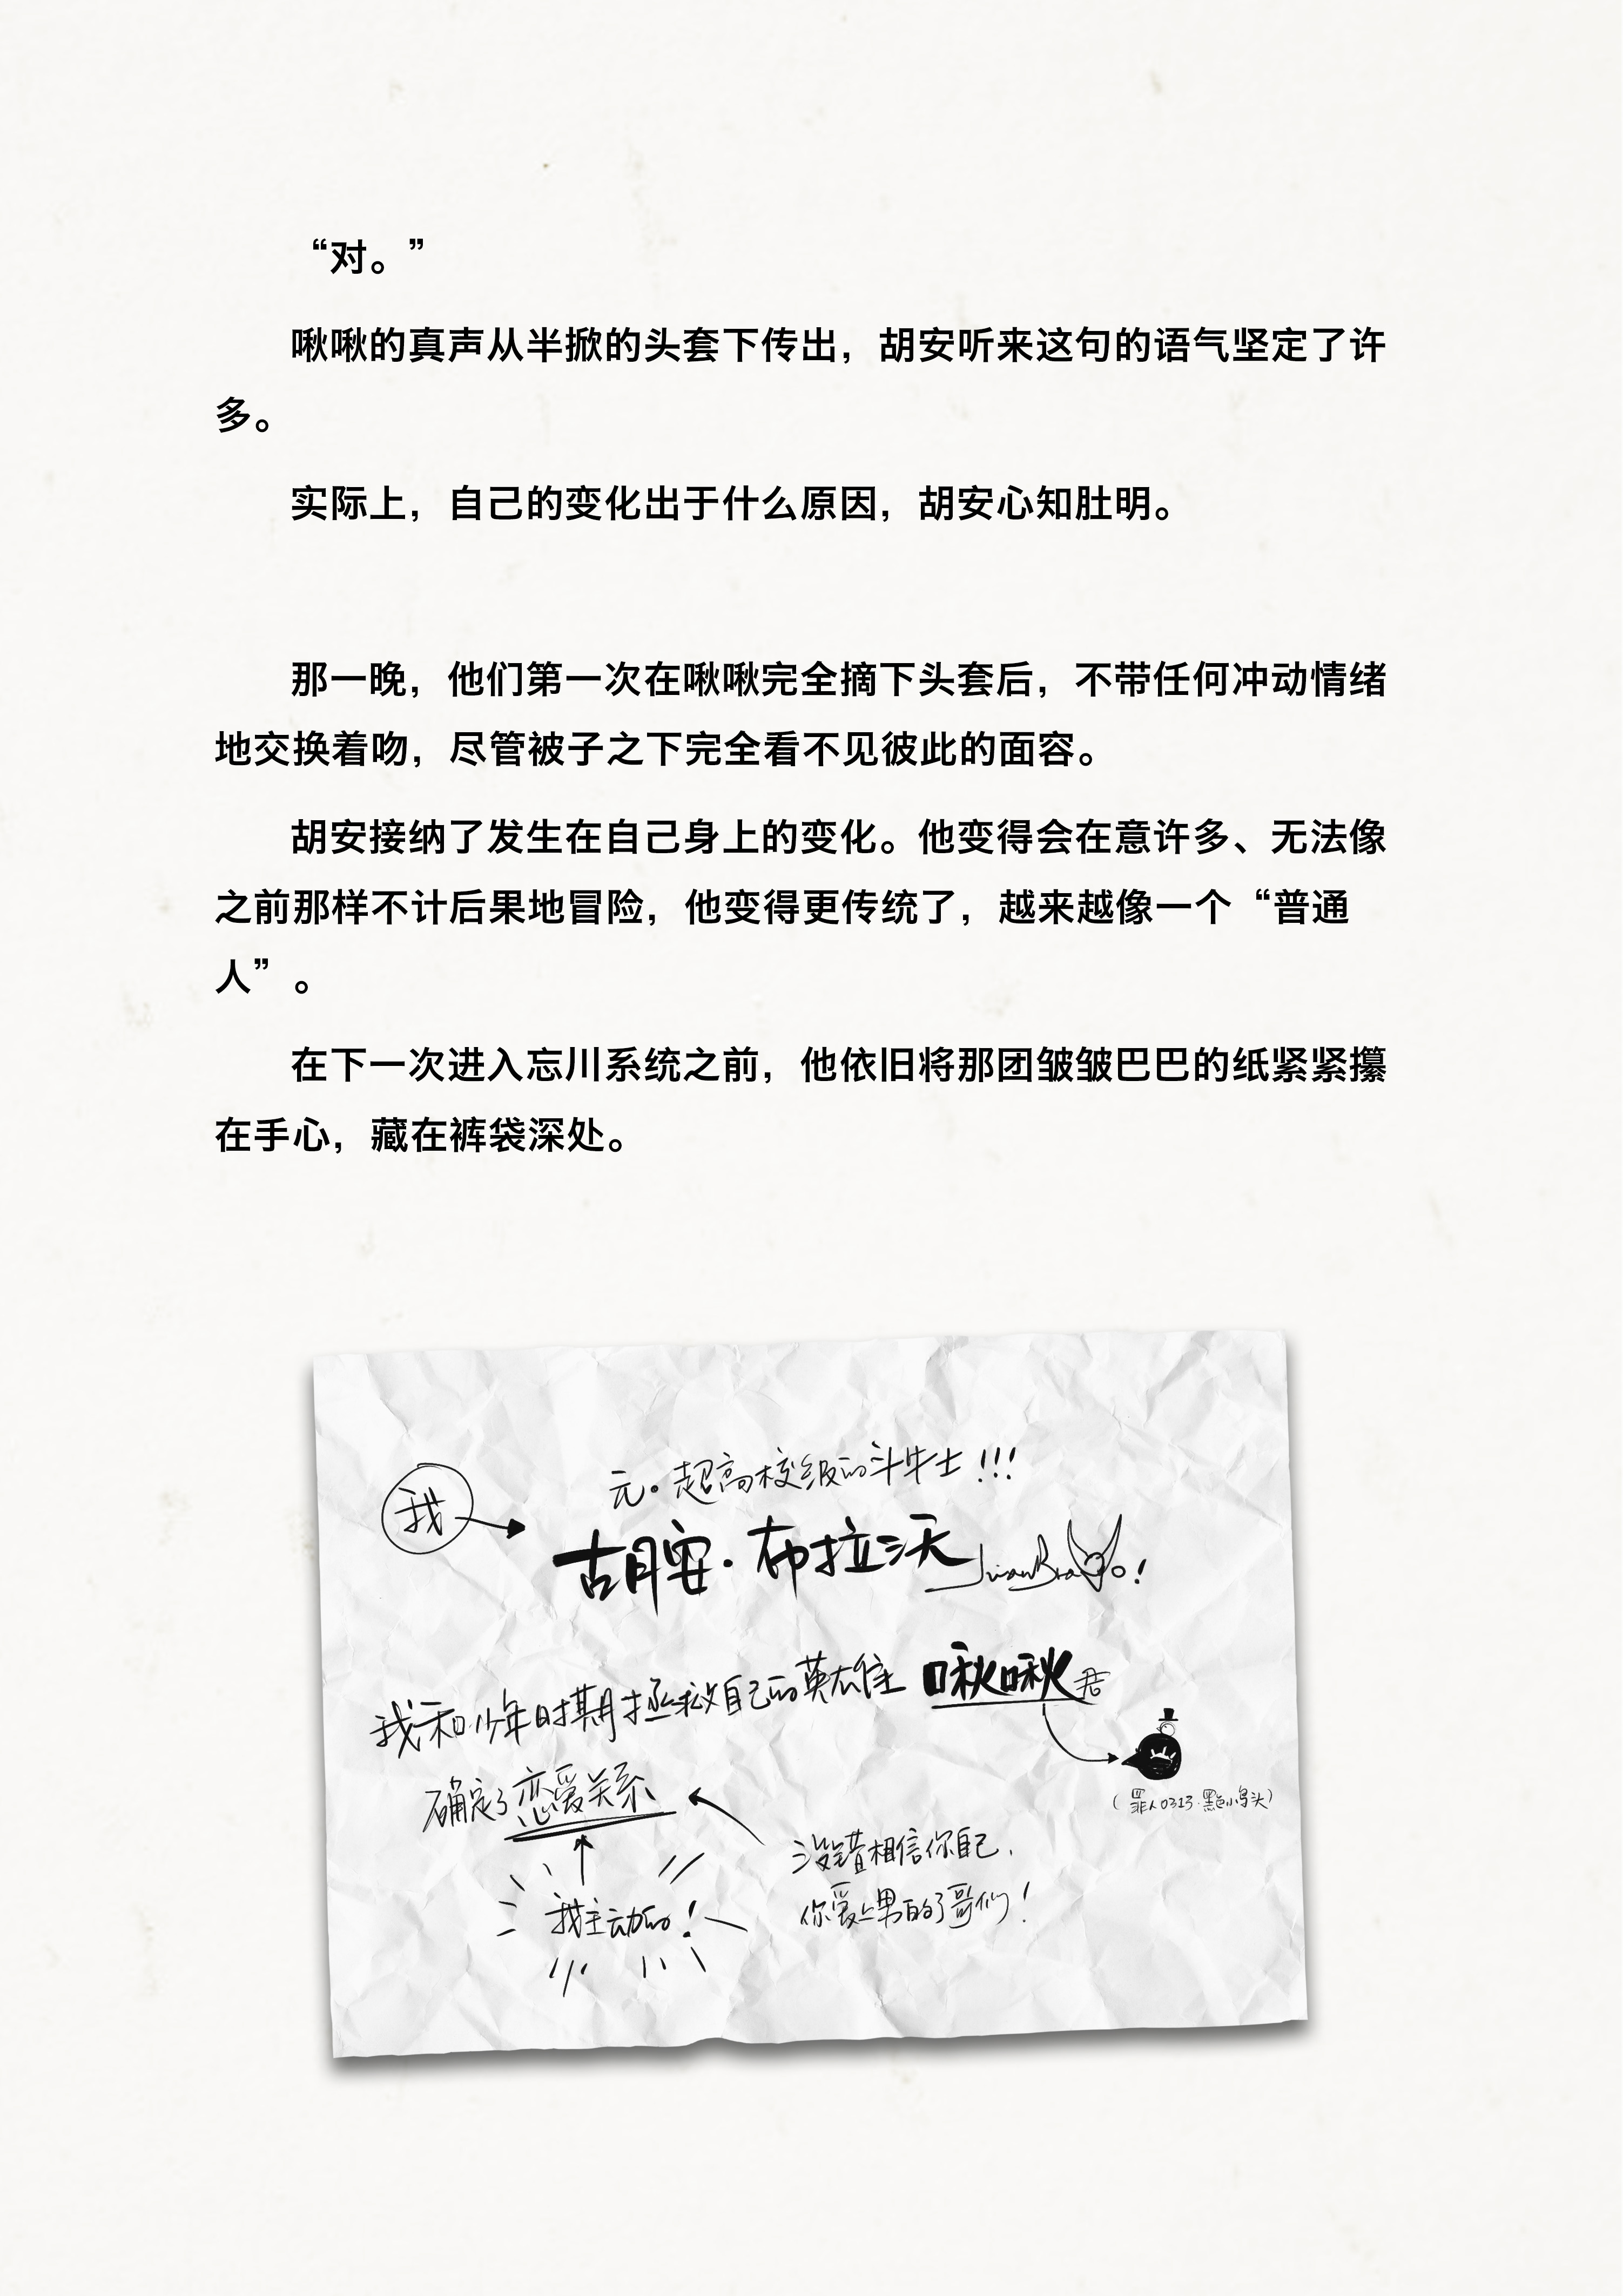 “对。”
啾啾的真声从半掀的头套下传出，胡安听来这句的语气坚定了许
多。
实际上，自己的变化出于什么原因，胡安心知肚明。
那一晚，他们第一次在啾啾完全摘下头套后，不带任何冲动情绪
地交换着吻，尽管被子之下完全看不见彼此的面容。
胡安接纳了发生在自己身上的变化。他变得会在意许多、无法像
之前那样不计后果地冒险，他变得更传统了，越来越像一个“普通
人”。
在下一次进入忘川系统之前，他依旧将那团皱皱巴巴的纸紧紧攥
在手心，藏在裤袋深处。
元。超高校级的斗牛士！！！
我
胡安·布拉沃 Juan Bravo！
我和少年时期拯救自己的英雄 啾啾君
确定了恋爱关系
（罪人0313·黑色小鸟头）
没错相信你自己，
你爱上男的了哥们！
我主动的！